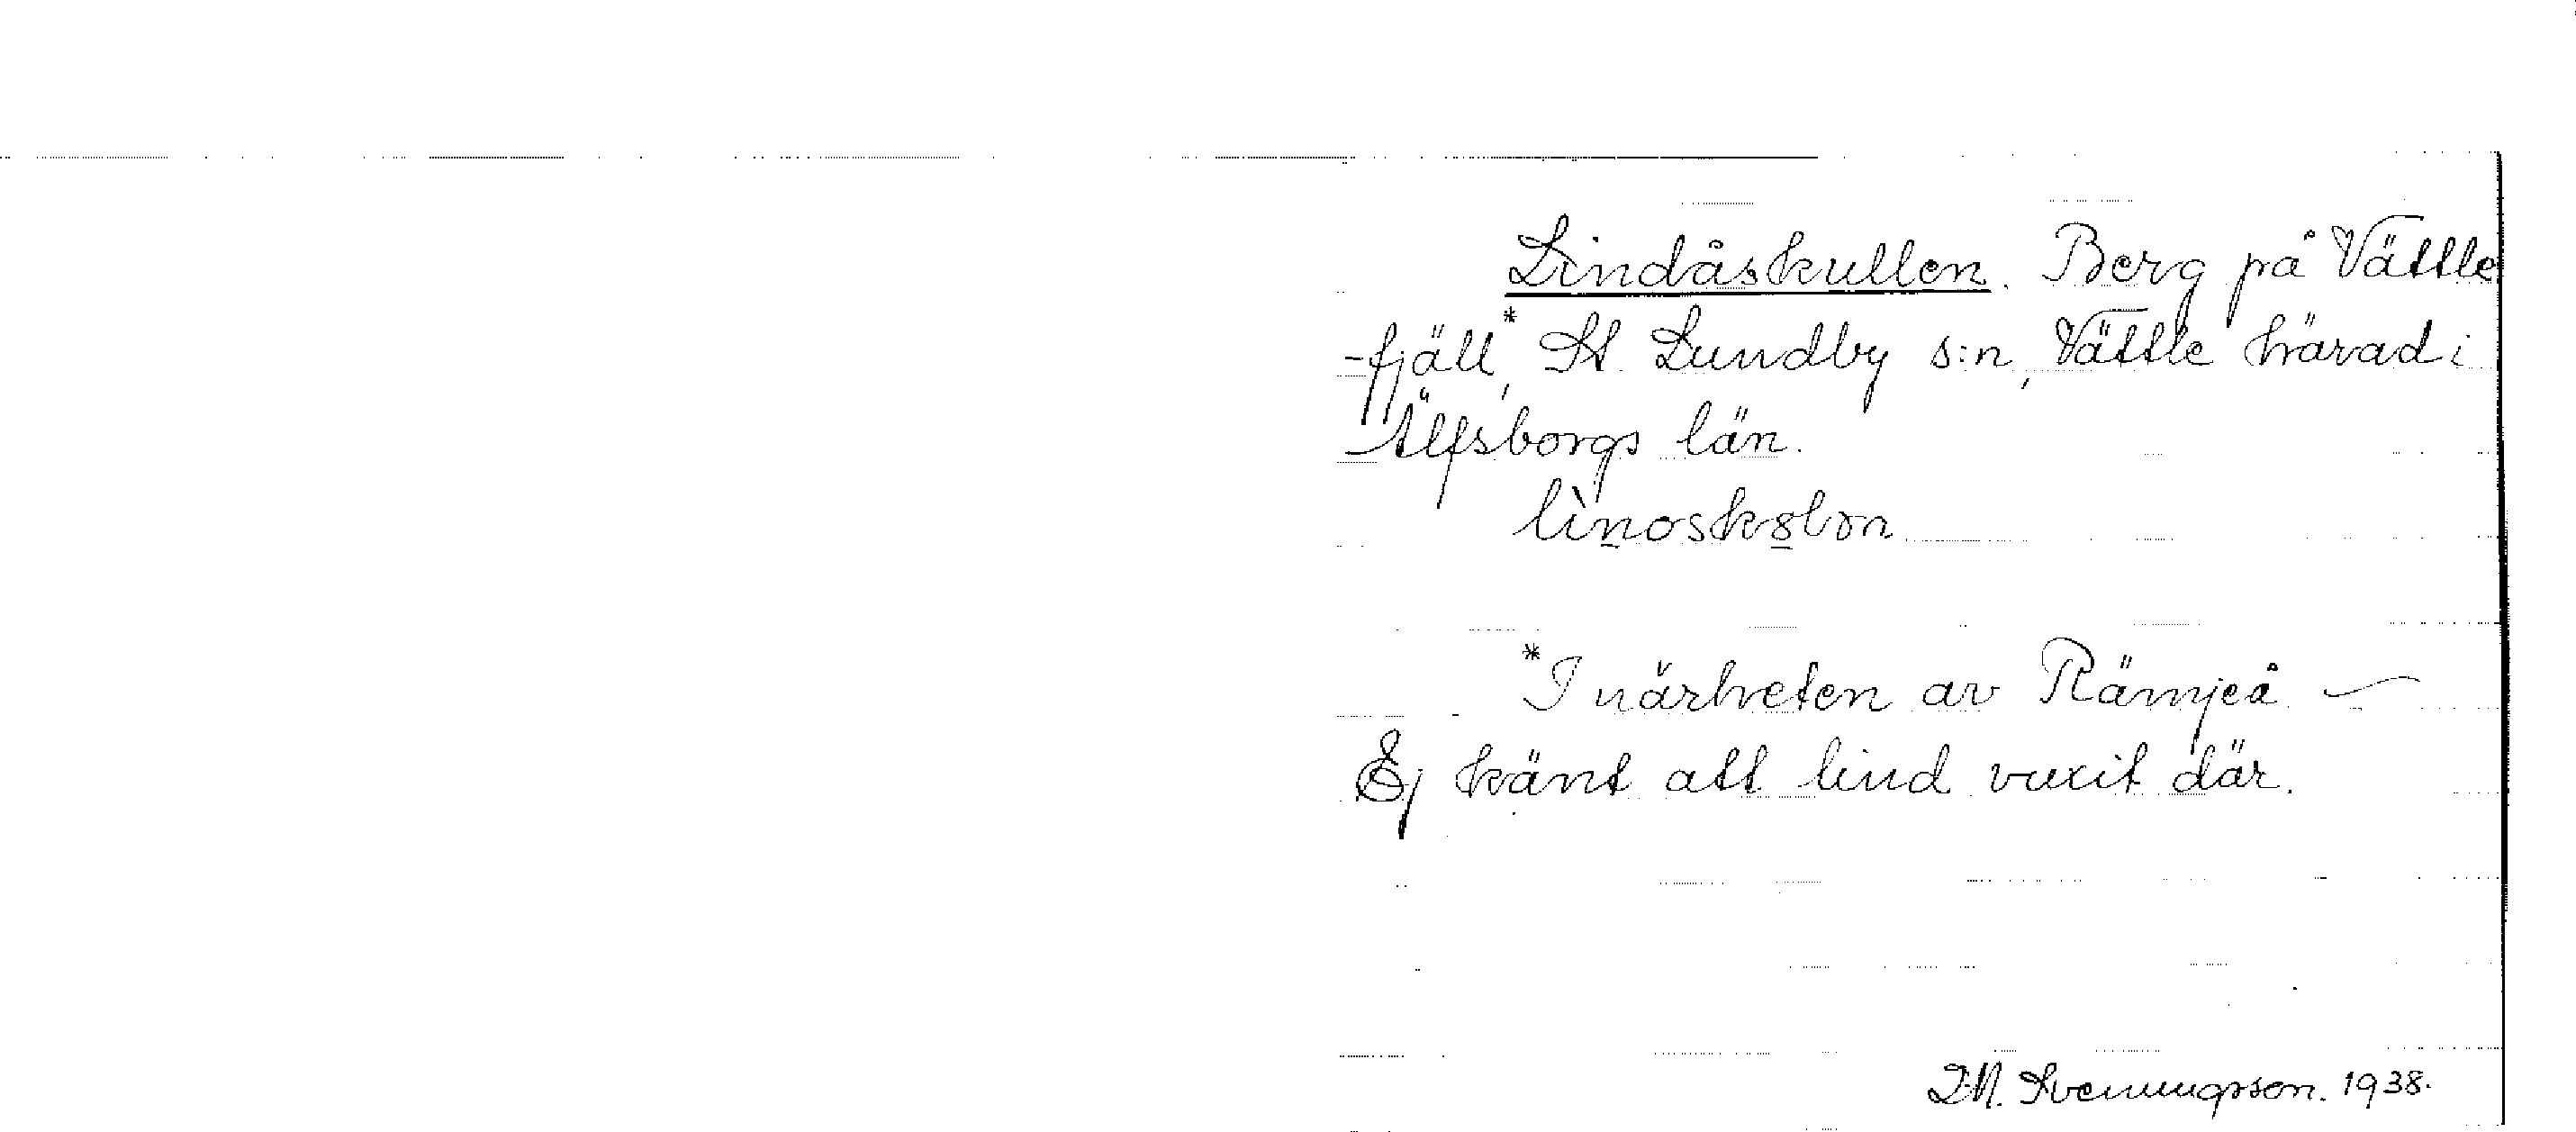 Lindåskullen. Berg på Vättle
-fjäll*, St. Lundby s:n, Vättle härad i
Älfsborgs län.
lìnoskȣlən
*I närheten av Rämjeå —
Ej känt att lind vuxit där.
D.N. Svenungsson. 1938.